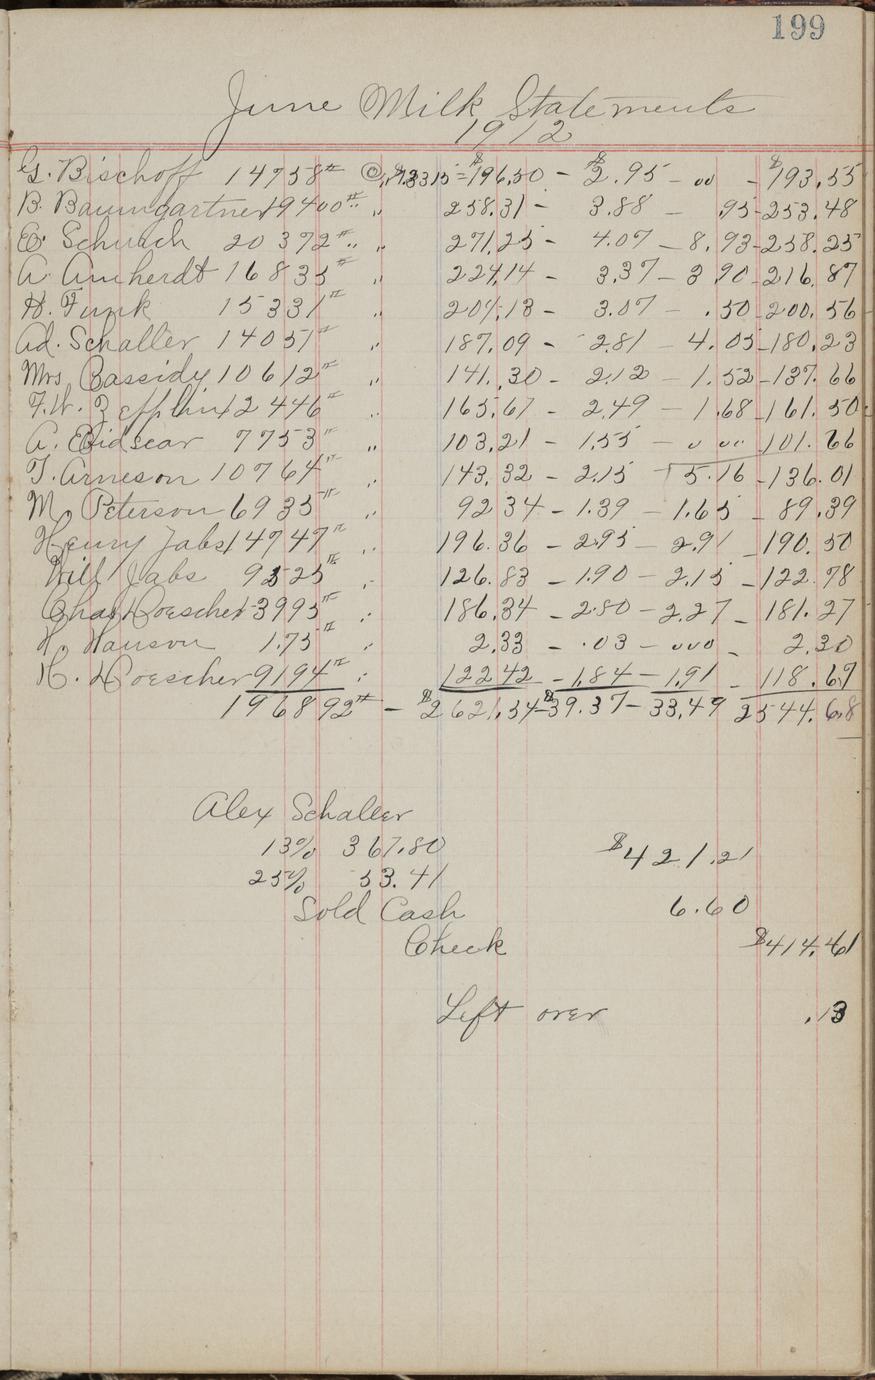 199
June Milk Statements
1912
G. Bischoff 14758# @ $1.3315 = $196.50 - $2.95 - 00 - $193.55
B. Baumgartner 19400# " 258.31 - 3.88 - .95 - 253.48
E. Schuch 20372# " 271.25 - 4.07 - 8.93 - 258.25
A. Amherdt 16835# " 224.14 - 3.37 - 3.90 - 216.87
H. Funk 15331# 204.13 - 3.07 - .50 - 200.56
Ad. Schaller 14051# " 187.09 - 2.81 - 4.05 - 180.23
Mrs Cassidy 10612# " 141.30 - 2.12 - 1.52 - 137.66
F.W. Zepplin 12446# " 165.67 - 2.49 - 1.68 - 161.50
A. 7753# " 103.21 - 1.55 - 000 101.66
T. Arneson 10764# " 143.32 - 2.15 - 5.16 - 136.01
M. Peterson 6935# " 92 34 - 1.39 - 1.65 - 89.39
Henry Jabs 14747# " 196.36 - 2.95 - 2.91 - 190.50
Will Jabs 9525# " 126.83 - 1.90 - 2.15 - 122.78
Chas Hoescher 13995# " 186.34 - 2.80 - 2.27 - 181.27
H. Hanson 1.75# " 2.33 - .03 - 000 - 2.30
H. Hoescher 9194# " 122 42 - 1.84 - 1.91 - 118.67
196892# - $2621.54 - $39.37 - 33.49 2544.68
Alex Schaller
13% 367.80 $421.21
25% 53.41
Sold Cash 6.60
Check $414.61
Left over .13